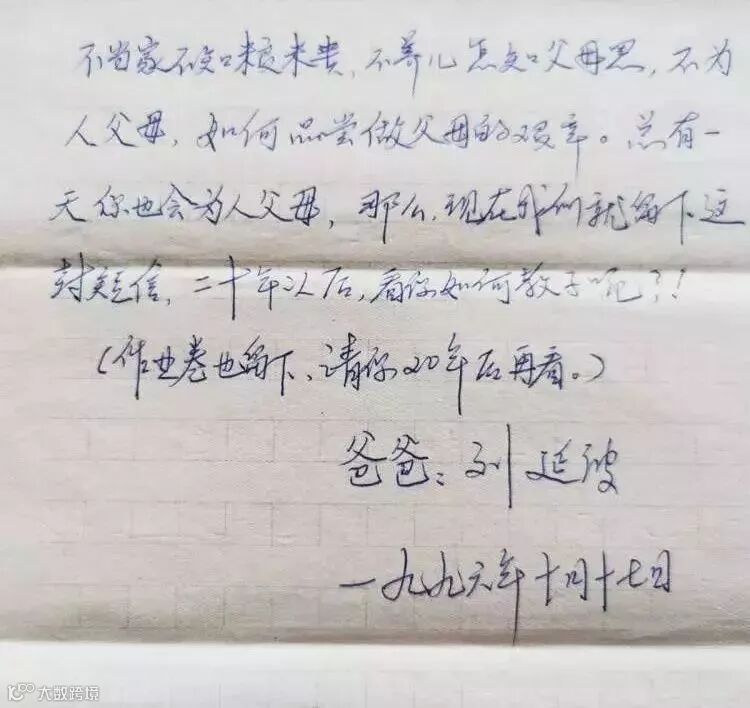 不当家不知柴米贵，不养儿怎知父母恩，不为
人父母，如何品尝做父母的艰辛。总有一
天你也会为人父母，那么，现在我们就留下这
封短信，二十年以后，看你如何教子呢？！
（作业卷也留下、请你20年后再看。）
爸爸：刘延波
一九九六年十月十七日
大数跨境